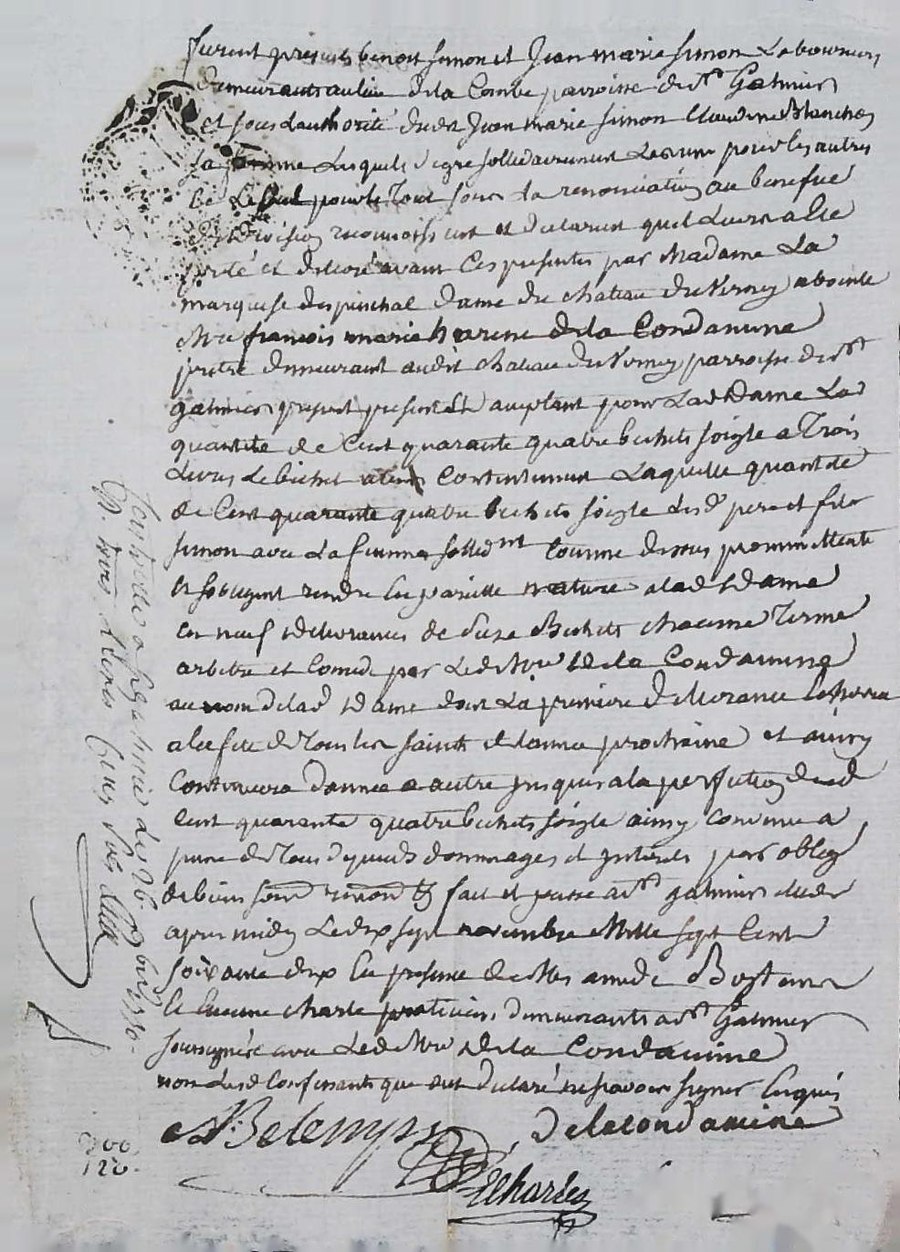 furent presents benoit simon et Jean marie simon Laboureurs
demeurants au lieu de la Combe parroisse de st Galmier
et sous l'authorité dudt Jean marie simon Claudine Blanchon
sa femme Lesquels de gré sollidairement Les uns pour les autres
Le seul pour le Tout sous la renonciation au benefice
de Division reconnoissent et declarent quil Leur a été
preté et delivré avant Ces presentes par Madame La
marquise despinchal dame du chateau du Verney absente
Mre françois marie harene de la Condamine
pretre demeurant audit chateau du Verney parroisse de st
galmier present et acceptant pour Lad Dame La
quantité de Cent quarante quatre bichets soigle a Trois
Livres Le bichet Laquelle quantité
de Cent quarante quatre bichets soigle Lesd pere et fils
simon avec La femme sollidnt Comme dessus promettent
et sobligent rendre en pareille nature a lad Dame
en neuf delivrances de seize Bichets chacune Terme
arbitré et Convenu par Led Mre de la Condamine
au nom de lad Dame dont La premiere delivrance
a la fete de Tous les saints de lannée prochaine et ainsy
Continuera d'année a autre jusques a la perfection desd
Cent quarante quatre bichets soigle ainsy Convenu a
peine de Tous depends dommages et interets par oblig
de biens soum renon et fait et passé a st galmier etude
apres midy Le dix sept novembre Mille sept Cent
soixante dix en presence de Mes
et Charle praticiens demeurants a st Galmier
soussignés avec Led Mre de la Condamine
non Lesd Confessants qui ont declaré ne scavoir signer Enquis
Delacondamine
Charles
Controllé a st galmier
200
120